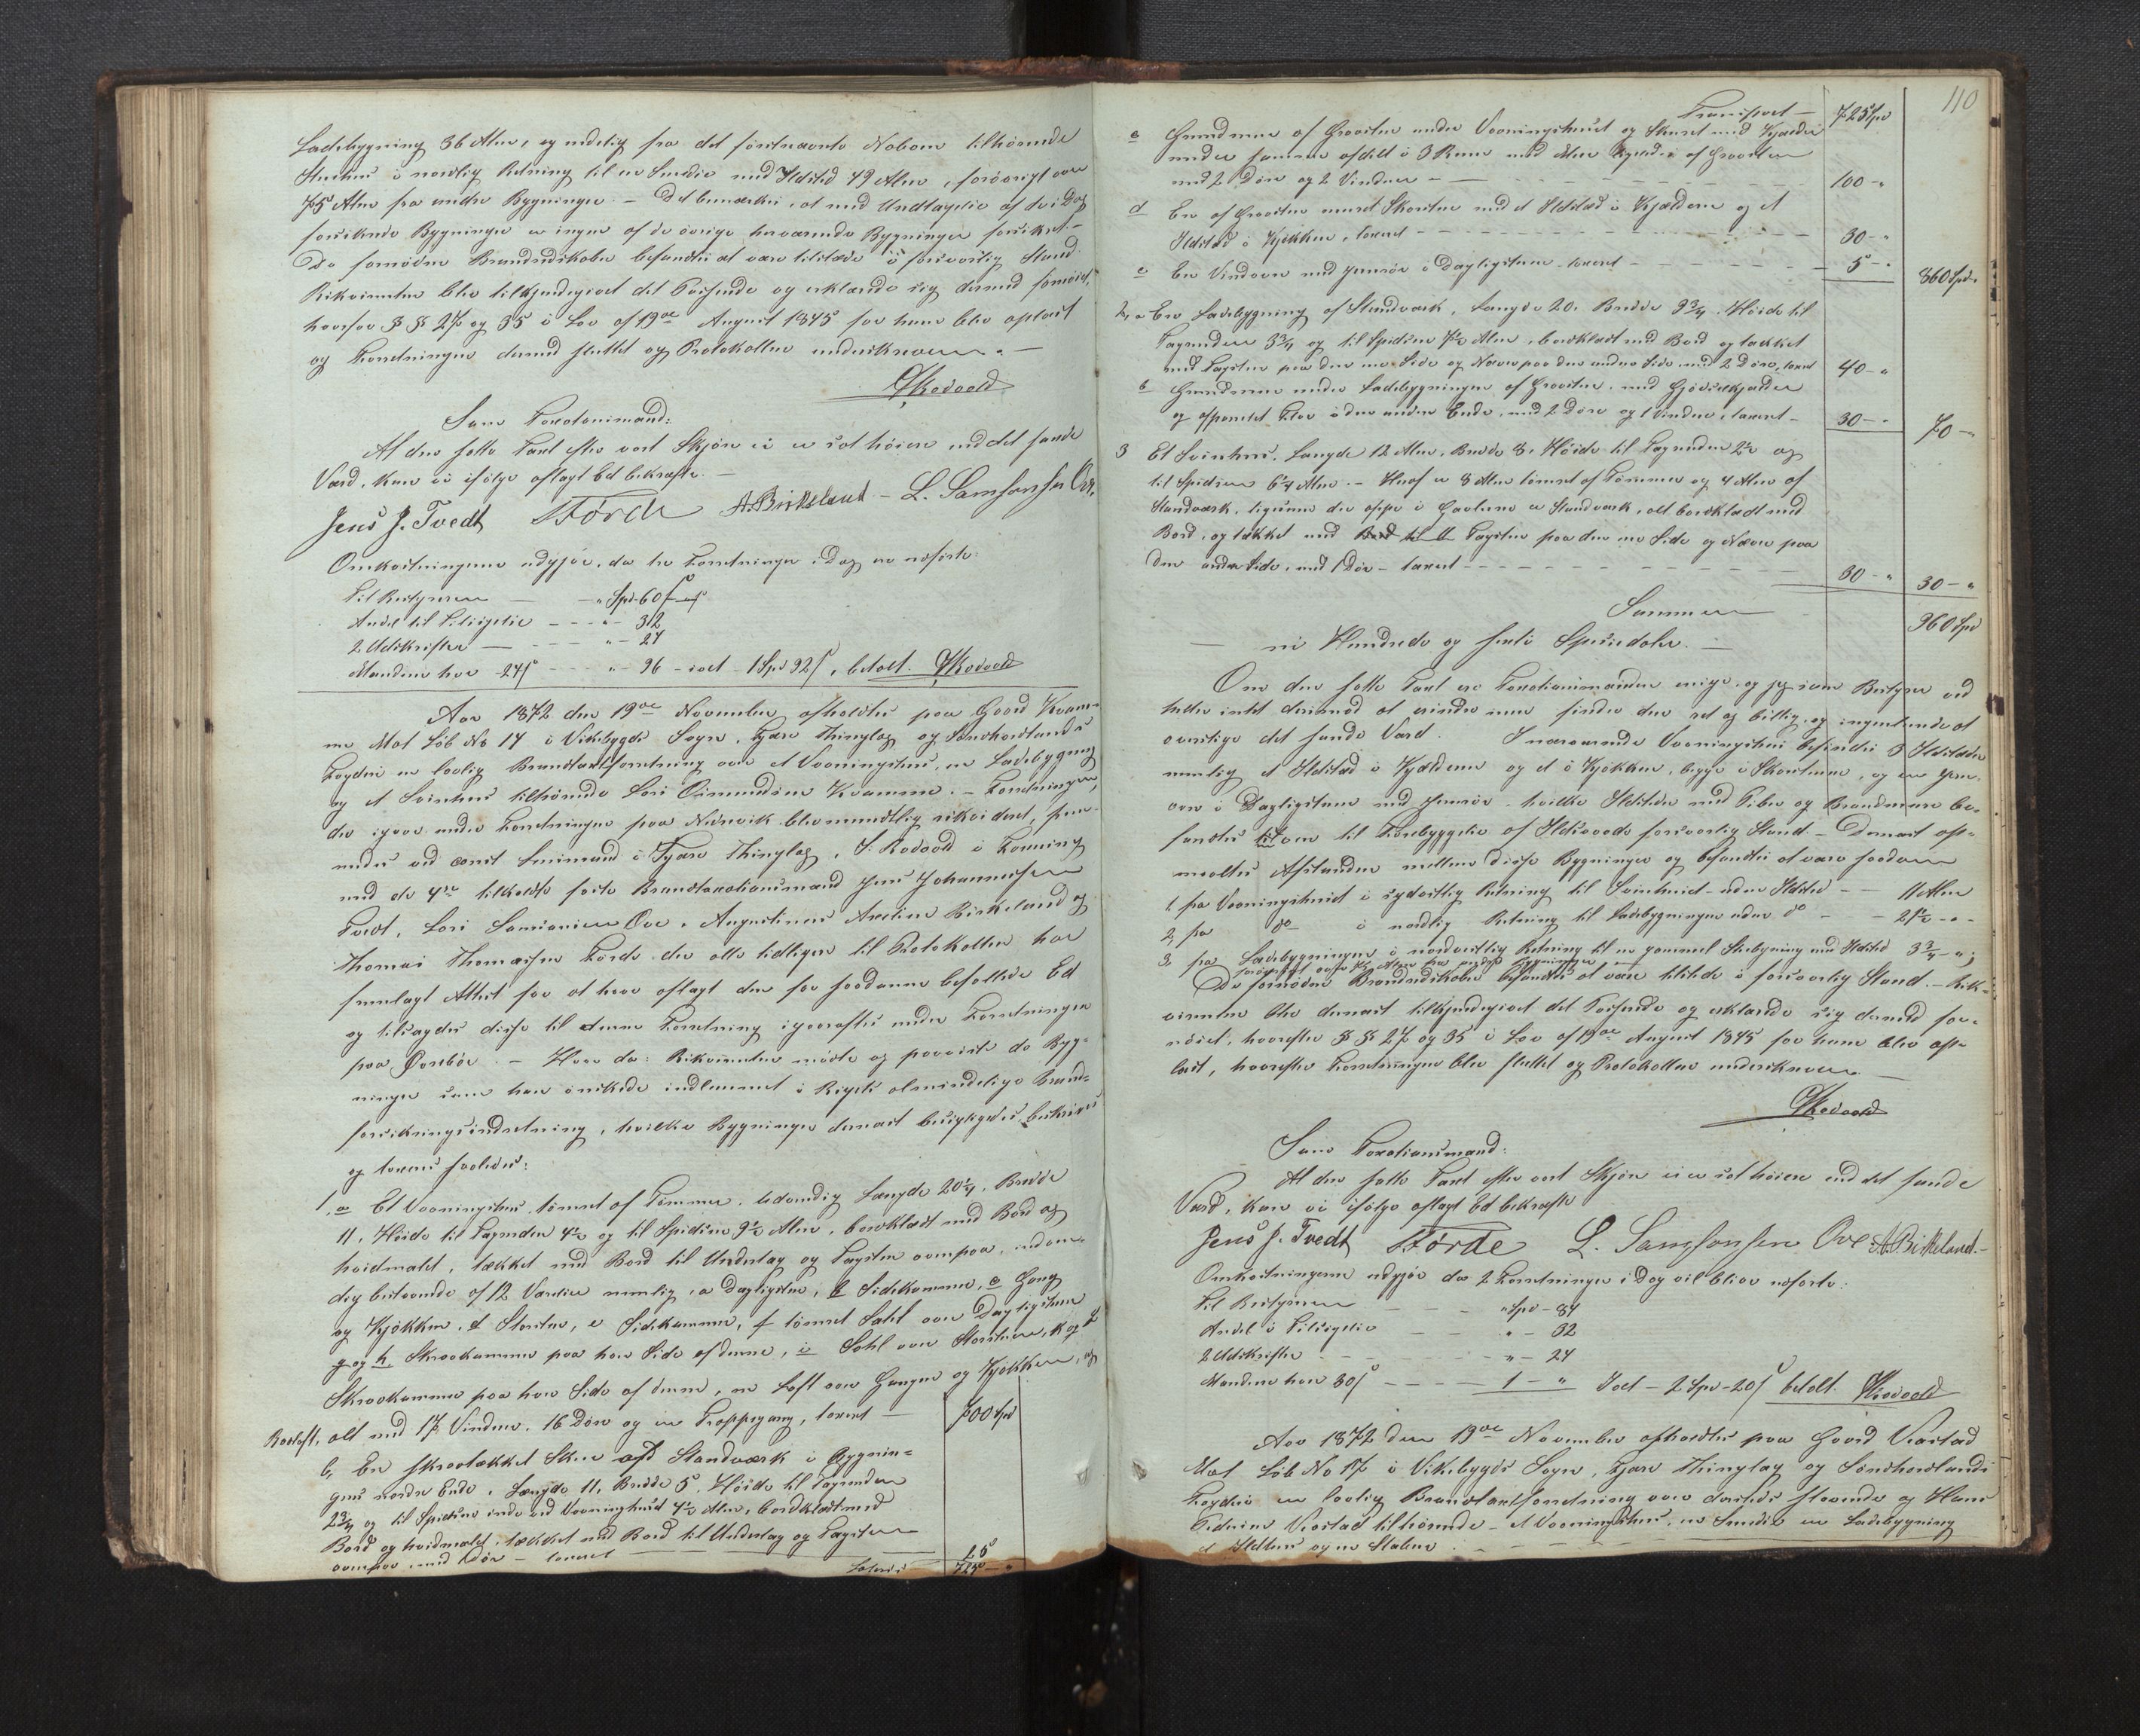 Ladebygning 36 Alen, og endelig fra det førstnævnte Naboen tilhørende
Stuehus i nordlig Retning til en Smedie med Ildsted 49 Alen, forøvrigt over
75 Alen fra andre Bygninger. – Det bemærkes, at med Undtagelse af de i Dag
forsikrede Bygninger er ingen af de øvrige herværende Bygninger forsikret. –
De fornødne Brandredskaber befandtes at være tilstede i forsvarlig Stand.
Rekvirenten blev tilkjendegivet det Passerede og erklærede sig dermed fornøiet,
hvorfor § § 27 og 35 i Lov af 19de August 1845 for ham blev oplæst
og Forretningen dermed sluttet og Protokollen underskreven. –
SRødvold
Som Taxationsmænd:
At den satte Taxt efter vort Skjøn ei er sat høiere end det sande
Værd, kan vi ifølge aflagt Ed bekræfte. –
Jens J. Tvedt TTFørde A. Birkeland – L. Samsonsen Ove,
Omkostningerne udgjør, da tre Forretninger i Dag er udførte:
Til Bestyreren – „ Spd. 60 ß
Andel til Tilsigelse – – „ – 32
2 Udskrifter – – „ – 24
Mændene hver 24 ß – – „ – 96 – ialt – 1 Spd 92 ß, betalt. SRødvold
Aar 1872 den 19de November afholdtes paa Gaard Kvam-
me Mat Løb No 14 i Vikebygds Sogn, Fjære Thinglag og Søndhordlands
Fogderi en lovlig Brandtaxtforretning over et Vaaningshus, en Ladebygning
og et Svinhus tilhørende Lars Omundsen Kvamme. – Forretningen,
der igaar under Forretningen paa Nedrevik blev mundtlig rekvireret, frem-
medes ved const Lensmand i Fjære Thinglag, S. Rødvold i Forening
med de 4re tilkaldte faste Brandtaxationsmænd Jens Johannessen
Tvedt, Lars Samsonsen Ove, Augustinus Axelsen Birkeland og
Thomas Thomassen Førde der alle tidligere til Protokollen har
fremlagt Attest for at have aflagt den for saadanne befalede Ed
og tilsagdes disse til denne Forretning igaaraftes under Forretningen
paa Øvrebøe. – Hvor da: Rekvirenten mødte og paaviste de Byg-
ninger som han ønskede indlemmet i Rigets almindelige Brand-
forsikringsindretning, hvilke Bygninger dernæst besigtigedes, beskrives
og taxeres saaledes:
1, a Et Vaaningshus tømret af Tømmer, udvendig Længde 20¼, Bredde
11, Høide til Tagrenden 4½ og til Spidsen 9½ Alen, bordklædt med Bord og
hvidmalet, tækket med Bord til Underlag og Tagsten ovenpaa, indven-
dig bestaaende af 12 Værelser nemlig, a Dagligstue, b Sidekammer, c Gang
og Kjøkken, d Storstue, e Sidekammer, f tømret Sahl over Dagligstuen
g og h Skraakammer paa hver Side af denne, i Sahl over Storstuen, k og l
Skraakammer paa hver Side af denne, m Loft over Gangen og Kjøkken, og
Røstloft, alt med 17 Vinduer, 16 Døre og en Trappegang, taxeret – 700 Spd
b, En skraatækket Skur af Standværk i Bygnin-
gens nordre Ende, Længde 11, Bredde 5, Høide til Tagrenden
2¾ og til Spidsen inde ved Vaaninghuset 4½ Alen, bordklædt med
Bord og hvidmalet, tækket med Bord til Underlag og Tagsten
ovenpaa, med 1 Dør – taxeret – 25
Lateris – 725 – „
110
Transport – 725 Spd
c Grundmur af Graasten under Vaaningshuset og Skuret med Kjælder
under samme afdelt i 3 Rum med Mur af Graasten
med 2 Døre og 2 Vinduer – 100 – „
d En af Graasten muret Skorsten med et Ildsted i Kjælderen og et
Ildsted i Kjøkken, taxeret – – – 30 – „
e En Vindovn med Jernrør i Dagligstuen taxeret – – – 5 – „ 860 Spd.
2, a En Ladebygning af Standværk, Længde 20, Bredde 9¾, Høide til
Tagrenden 3¾ og til Spidsen 7½ Alen, bordklædt med Bord og tækket
med Tagsten paa den ene Side og Næver paa den anden Side med 2 Døre, taxeret 40 – „
b Grundmur under Ladebygningen af Graasten, med Gjødselkjælder
og Flor i den anden Ende, med 2 Døre og 1 Vindue, taxeret – 30 – „ 70 – „
3 Et Svinhus, Længde 12 Alen, Bredde 8, Høide til Tagrenden 2½ og
til Spidsen 6¼ Alen. – Heraf er 8 Alen tømret af Tømmer og 4 Alen af
Standværk, ligesom der oppe i Gavlerne er Standværk, alt bordklædt med
Bord, og tækket med Bord til U Tagsten paa den ene Side og Næver paa
den anden Side, med 1 Dør – taxeret – – – 30 – „ 30 – „
Summa 960 Spd
– ni Hundrede og sexti Speciedaler. –
Om den satte Taxt ere Taxationsmændene enige, og jeg som Bestyrer ved
heller intet derimod at erindre men finder den ret og billig og ingenlunde at
overstige det sande Værd. I nærværende Vaaningshus befindes 3 Ildsteder
nemlig et Ildsted i Kjælderen og et i Kjøkken, begge i Skorstenen, og en Jern-
ovn i Dagligstuen med Jernrør, hvilke Ildsteder med Piber og Brandmure be-
fandtes at være til Forebyggelse af Ildsvaade forsvarlig Stand. – Dernæst op-
maaltes Afstanden mellem disse Bygninger og befandtes at være saadan
1, fra Vaaningshuset i sydostlig Retning til Svinhuset uden Ildsted – – 11 Alen
2, fra do i nordlig Retning til Ladebygningen uden do – – 21½ – „ –
3, fra Ladebygningen i nordvestlig Retning til en gammel Stuebygning med Ildsted 3¾ – „ ;
forøvrigt over 75 Alen fra andre Bygninger. –
De fornødne Brandredskaber befandtes at være tilstede i forsvarlig Stand. – Rek-
virenten blev dernæst tilkjendegivet det Passerede og erklærede sig dermed for-
nøiet, hvorefter § § 27 og 35 i Lov af 19de August 1845 for ham blev op-
læst, hvorefter Forretningen blev sluttet og Protokollen underskreven. –
SRødvold
Som Taxationsmænd:
At den satte Taxt efter vort Skjøn ei er sat høiere end det sande
Værd, kan vi ifølge aflagt Ed bekræfte
Jens J. Tvedt TTFørde L. Samsonsen Ove A. Birkeland. –
Omkostningerne udgjør da 2 Forretninger i Dag vil blive udførte:
Til Bestyreren – – – „ Spd – 84
Andel i Tilsigelse – – „ – 32
2 Udskrifter – – – „ – 24
Mændene hver 30 ß – – – 1 – „ Ialt – 2 Spd – 20 ß betalt. SRødvold
Aar 1872 den 19de November afholdtes paa Gaard Viestad
Mat Løb No 17 i Vikebygds Sogn, Fjære Thinglag og Søndhordlands
Fogderi en lovlig Brandtaxtforretning over dersteds staaende og Hans
Viestad tilhørende – et Vaaningshus, en Smedie en Ladebygning
et Ildhus og en Stabur